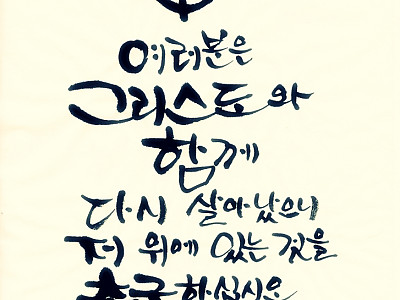 여러분은
그리스도와
함께
다시 살아났으니
저 위에 있는 것을
추구하십시오